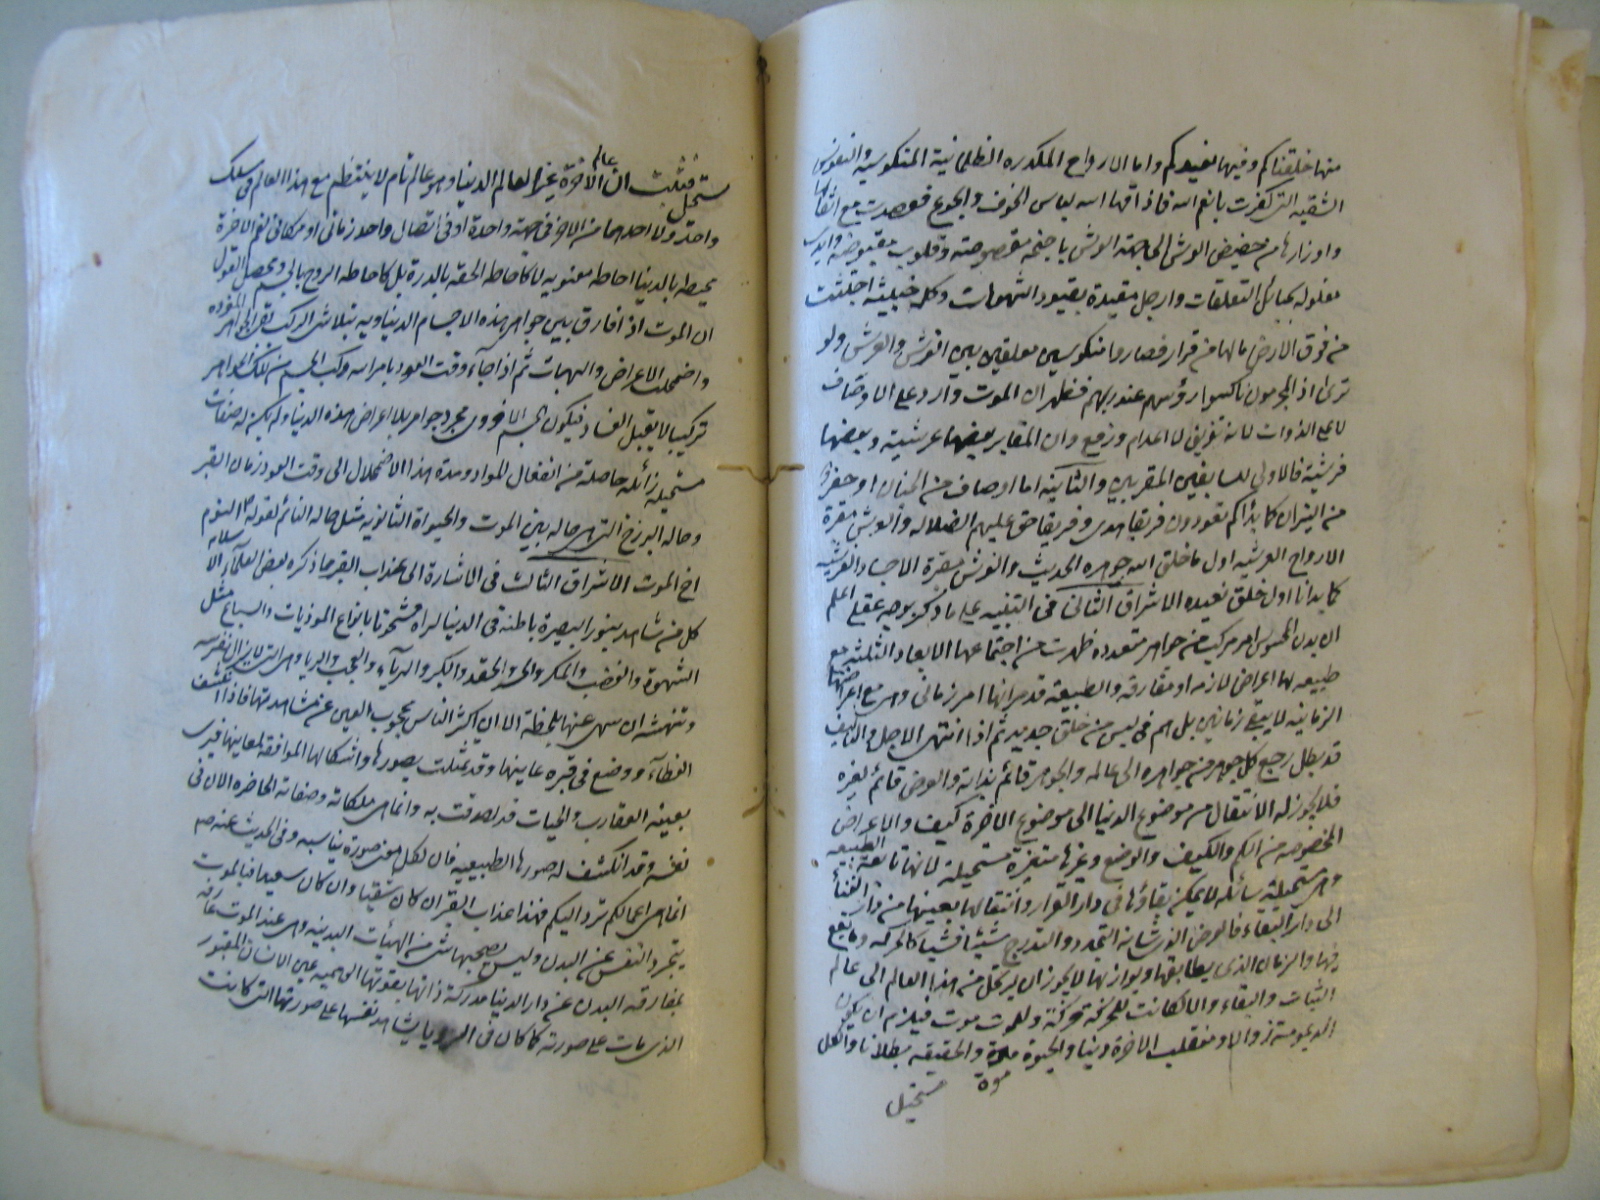 منها خلقناكم وفيها نعيدكم واما الارواح المكدره الظلمانية المنكوسية والنفوس
الشقيه التي كفرت بانعم الله فاذاقها الله لباس الخوف والجوع فصعدت مع اثقالها
واوزارها من حضيض الفرش الى جهة العرش باجنحة مقصوصة وقلوب مقبوضة وايدى
مغلوله بحبائل التعلقات وارجل مقيدة بقيود الشهوات وكلمة خبيثة اجتثت
من فوق الارض مالها من قرار فصاروا منكوسين معلقين بين الفرش والعرش ولو
ترى اذ المجرمون ناكسوا رؤسهم عند ربهم فظهر ان الموت وارد على الاوصاف
لا على الذوات لانه تفريق لا اعدام ورفع وان المقابر بعضها عرشية وبعضها
فرشية فالاولى للسابقين المقربين والثانية اما اوصاف من الجنان او حفرة
من النيران كما بداكم تعودون فريقا هدى وفريقا حق عليهم الضلاله والعرش مقبرة
الارواح العرشيه اول ما خلق الله جوهره الحديث والفرش مقبرة الاجساد الفرشيه
كما بدانا اول خلق نعيده الاشراق الثانى فى التنبيه على ما ذكر بوجه عقلى اعلم
ان بدن المحسوس امر مركب من جواهر متعدده ظهرت من اجتماعها الابعاد الثلثه مع
طبيعه لها اعراض لازمه او مفارقه والطبيعة قد مر انها امر زمانى وهى مع اعراضها
الزمانيه لا يبقى زمانين بل هم فى لبس من خلق جديد ثم اذا انتهى الاجل والتاليف
قد بطل رجع كل جوهر من جواهره الى عالمه والجوهر قائم بذاته والعرض قائم بغيره
فلا يجوز له الانتقال من موضوع الدنيا الى موضوع الاخرة كيف والاعراض
المخصوصه من الكم والكيف والوضع وغيرها متغيرة مستحيلة لانها تابعة الطبيعه
وهى مستحيلة سائله لا يمكن بقاؤها فى دار القرار وانتقالها بعينها من دار الفناء
الى دار البقاء فالعرض الذى شانه التجدد والتدرج شيئا فشيئا كالحركه وما يقع
فيها والزمان الذى يطابقها ويوازيها لا يجوز ان يرتحل من هذا العالم الى عالم
الثبات والبقاء والا لكانت للحركة حركة وللموت موت فيلزم ان يكون
الديمومة زوالا ومنقلب الاخرة دنيا والحيوة موتة والحقيقه بطلانا والكل
موة
مستحيل
مستحيل فثبت ان عالم الاخرة غير العالم الدنيا وهو عالم تام لا ينتظم مع هذا العالم فى سلك
واحد ولا احدهما من الاخر فى جهة واحدة او فى اتصال واحد زمانى او مكانى نعم الاخرة
محيطه بالدنيا احاطه معنويه لا كاحاطه الحقه بالدرة بل كاحاطه الروح بالجسم ومحصل القول
ان الموت اذا فارق بين جواهر هذه الاجسام الدنياويه بتلاشى المركب تبقى الجواهر المفرده
واضمحلت الاعراض والهيات ثم اذا جاء وقت العود بامر الله يركب الجسم من تلك الجواهر
تركيبا لا يقبل الفساد فيكون الجسم الاخروى مجرد جواهر بلا اعراض هذه الدنيا ولم يكن له صفات
مستحيله زائله حاصلة من انفعال المواد ومدة هذا الاضمحلال الى وقت العود زمان القبر
وحاله البرزخ التى هى حاله بين الموت والحيواة الثانويه مثل حاله النائم لقوله ص النوم
اخ الموت الاشراق الثالث فى الاشارة الى عذاب القبر ما ذكره بعض العلماء الاسلامية
كل من شاهد بنور البصيرة باطنه فى الدنيا لراه مشحونا بانواع الموذيات والسباع مثل
الشهوة والغضب والمكر والحسد والحقد والكبر والرياء والعجب والريا وهى التى لا يزال تفترسه
وتنهشه ان سهى عنها بلحظة الا ان اكثر الناس محجوب العين عن مشاهدتها فاذا انكشف
الغطاء ووضع فى قبره عاينها وقد تمثلت بصورها واشكالها الموافقه لمعانيها فيرى
بعينه العقارب والحيات قد احدقت به وانما هى ملكاته وصفاته الحاضره الان فى
نفسه وقد انكشف له صورها الطبيعيه فان لكل معنى صورة يناسبه وفى الحديث عنه ص
انما هى اعمالكم ترد اليكم فهذا عذاب القبر ان كان شقيا وان كان سعيدا فبالموت
يتجرد النفس عن البدن وليس يصحبها شئ من الهيئات البدنيه وهى عند الموت عارفه
بمفارقه البدن عن دار الدنيا مدركة ذاتها بقوتها الوهميه عين الانسان المقبور
الذى مات على صورته كما كان فى الرويا يشاهد نفسها على صورتها التى كانت